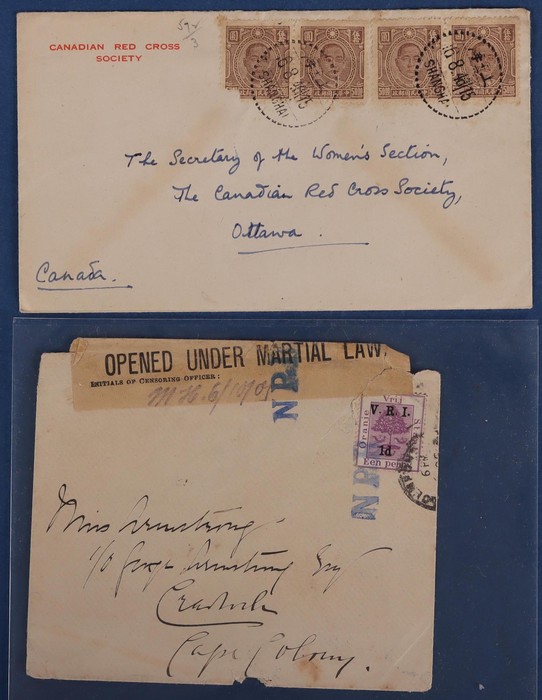 59x
3
CANADIAN RED CROSS
SOCIETY
SHANGHAI
SHANGHAI
The Secretary of the Women's Section,
The Canadian Red Cross Society,
Ottawa.
Canada.
OPENED UNDER MARTIAL LAW.
INITIALS OF CENSORING OFFICER:
NPR
Vrij
Oranje
V.R.I.
1d
Een penny
NPR
Miss Armstrong
c/o George Armstrong Esq
Cradock
Cape Colony.